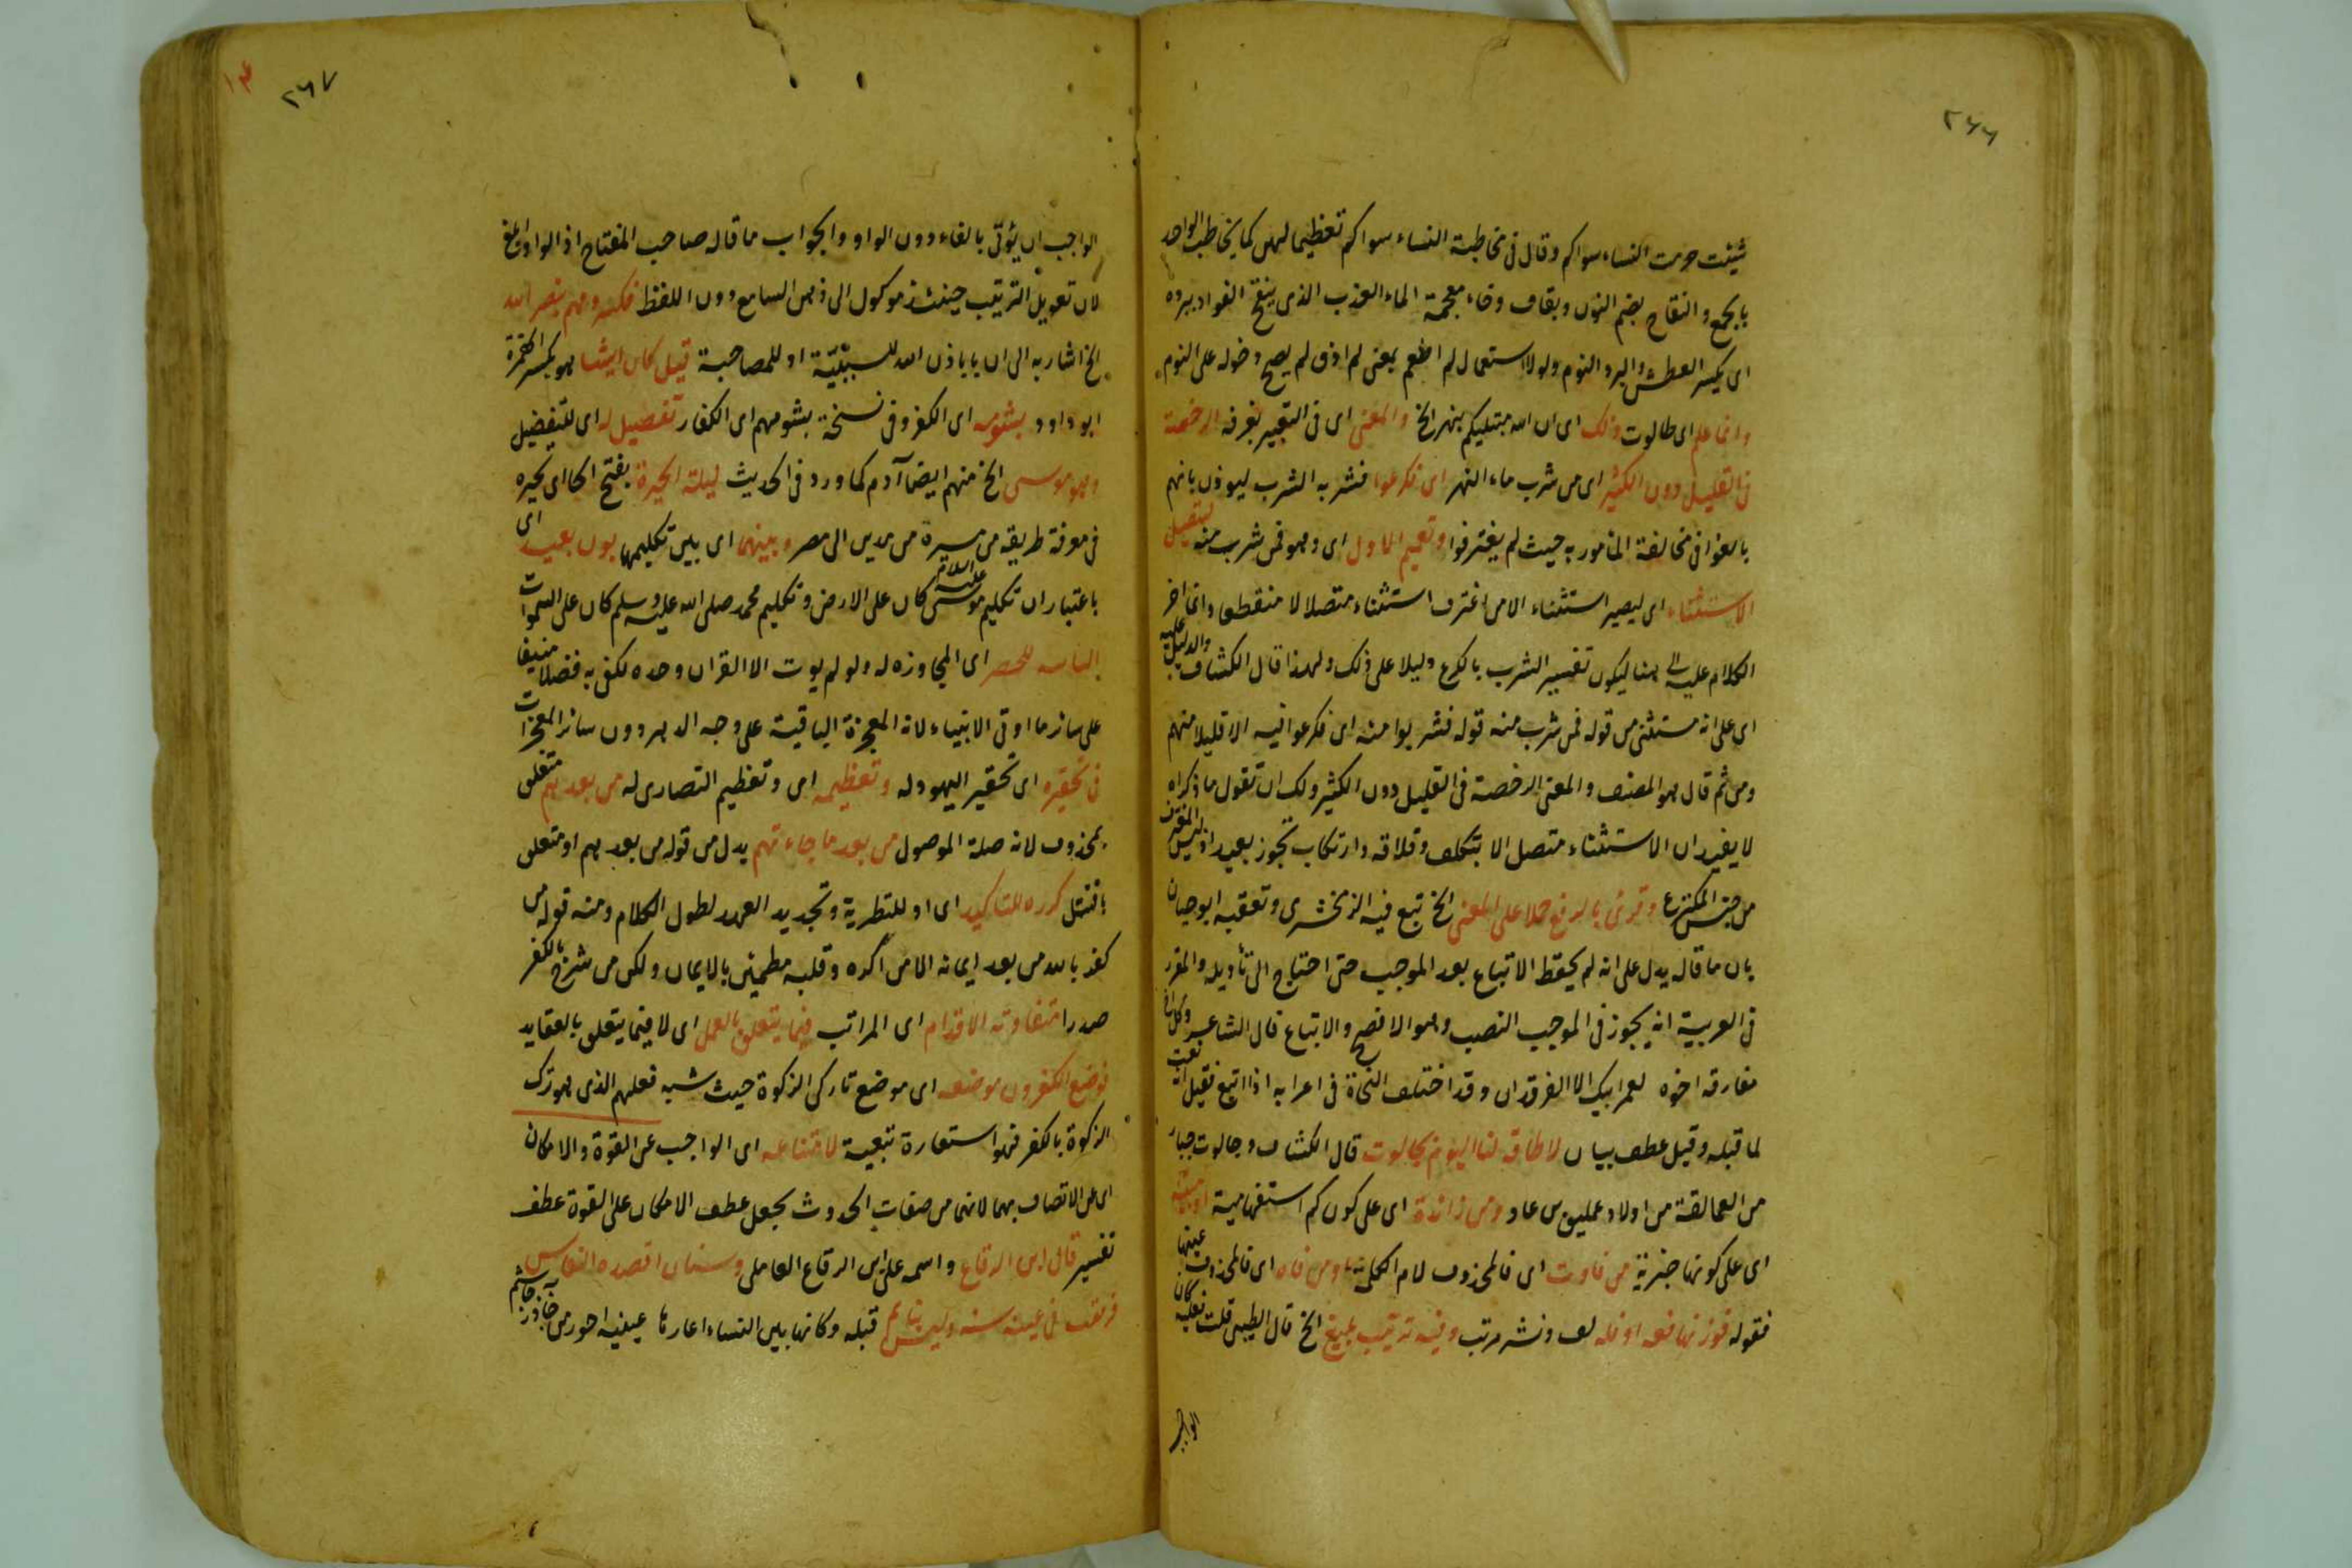 ٢٦٦
شئت حرمت النساء سواكم وقال فى مخاطبة النساء سواكم تعظيما لهن كما يخاطب الواحد
بالجمع والنقاخ بضم النون وبقاف وخاء معجمة الماء العذب الذى ينقخ الفواد ببرده
اى يكسر العطش والبرد النوم ولولا استعمال لم اطعم بمعنى لم اذق لم يصح دخوله على النوم
وانما علم اى طالوت ذلك اى ان الله مبتليكم بنهر الخ والمعنى اى فى التعبير بغرفة الرخصة
فى القليل دون الكثير اى من شرب ماء النهر اى فكرعوا فشربه الشرب ليوذن بانهم
بالغوا فى مخالفة المامور به حيث لم يغترفوا وتعميم الاول اى وهو فمن شرب منه ليتصل
الاستثناء اى ليصير استثناء الا من اغترف استثناء متصلا لا منقطعا وانما اخر
الكلام عليه الى هنا ليكون تفسير الشرب بالكرع دليلا على ذلك ولهذا قال الكشاف والدليل عليه
اى على انه مستثنى من قوله فمن شرب منه قوله فشربوا منه اى فكرعوا فيه الا قليلا منهم
ومن ثم قال هو المصنف والمعنى الرخصة فى القليل دون الكثير ولك ان تقول ما ذكراه
لا يفيد ان الاستثناء متصل الا بتكلف وقلاقه وارتكاب تجوز بعيد اذ ليس المغترف
من جنس المكترع وقرئ بالرفع حملا على المعنى الخ تبع فيه الزمخشرى وتعقبه ابو حيان
بان ما قاله يدل على انه لم يحفظ الاتباع بعد الموجب حتى احتاج الى تأويله والمقرر
فى العربية انه يجوز فى الموجب النصب وهو الافصح والاتباع قال الشاعر وكل اخ
مفارقه اخوه لعمر ابيك الا الفرقدان وقد اختلف النحاة فى اعرابه اذا اتبع فقيل انه نعت
لما قبله وقيل عطف بيان لا طاقة لنا اليوم بجالوت قال الكشاف وجالوت جبار
من العمالقة من اولاد عمليق بن عاد ومن زائدة اى على كون كم استفهامية او مبينة
اى على كونها خبرية من فاوت اى فالمحذوف لام الكلمة او من فاء اى فالمحذوف عينها
فقوله فوزنها فعة او فلة لف ونشر مرتب وفيه ترتيب بليغ الخ قال الطيبى قلت فعليه كان
الواجب
٢٦٧
الواجب ان يؤتى بالفاء دون الواو والجواب ما قاله صاحب المفتاح اذ الواو ابلغ
لان تعويل الترتيب حينئذ موكول الى ذهن السامع دون اللفظ فكسروهم بنصر الله
الخ اشار به الى ان با باذن الله للسببيّة او للمصاحبة قيل كان ايشا هو بكسر الهمزة
ابو داود بشومه اى الكفر وفى نسخة بشومهم اى الكفار تفصيل له اى للتفضيل
وهو موسى الخ منهم ايضا آدم كما ورد فى الحديث ليلة الحيرة بفتح الحا اى تحيره
فى معرفة طريقه من مسيره من مدين الى مصر وبينهما اى بين تكليمهما بون بعيد اى
باعتبار ان تكليم موسى عليه السلام كان على الارض وتكليم محمد صلى الله عليه وسلم كان على السموات
الفاسد للحصر اى المجاوزه له ولو لم يوت الا القران وحده لكفى به فضلا منيفا
على سائر ما اوتى الانبياء لانه المعجزة الباقية على وجه الدهر دون سائر المعجزات
فى تحقيره اى تحقير اليهود له وتعظيمه اى وتعظيم النصارى له من بعدهم متعلق
بمحذوف لانه صلة الموصول من بعد ما جاءتهم بدل من قوله من بعدهم او متعلق
باقتتل كرره للتاكيد اى او للتطرية وتجديد العهد لطول الكلام ومنه قوله من
كفر بالله من بعد ايمانه الا من اكره وقلبه مطمئن بالايمان ولكن من شرح بالكفر
صدرا متفاوتة الاقدام اى المراتب فيما يتعلق بالعمل اى لا فيما يتعلق بالعقايد
فوضع الكفرون موضعه اى موضع تاركى الزكوة حيث شبه فعلهم الذى هو ترك
الزكوة بالكفر فهو استعارة تبعية لامتناعه اى الواجب عن القوة والامكان
اى عن الاتصاف بهما لانهما من صفات الحدوث بجعل عطف الامكان على القوة عطف
تفسير قال ابن الرقاع واسمه على بن الرقاع العاملى وسنان اقصده النعاس
فرنقت فى عينه سنة وليس بنائم قبله وكانها بين النساء اعارها عينيه احور من جآذر جاسم